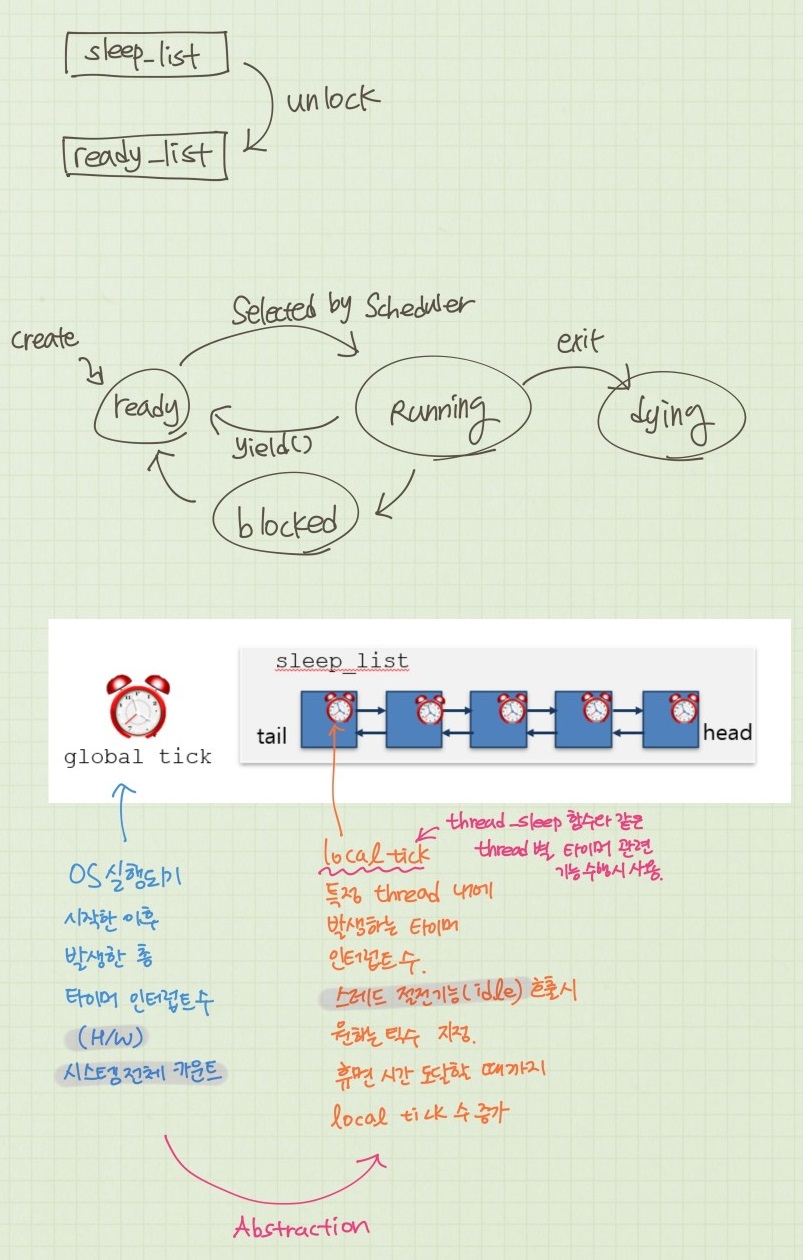 sleep_list
unlock
ready_list
Selected by Scheduler
create
exit
ready
Running
dying
yield()
blocked
sleep_list
tail
head
global tick
thread_sleep 함수와 같은
thread 별, 타이머 관련
기능 수행시 사용.
local tick
OS 실행되기
시작한 이후
발생한 총
타이머 인터럽트 수
(H/W)
시스템 전체 카운트
특정 thread 내에
발생하는 타이머
인터럽트 수.
스레드 절전기능(idle) 호출시
원하는 틱수 지정.
휴면 시간 도달할 때까지
local tick 수 증가
Abstraction